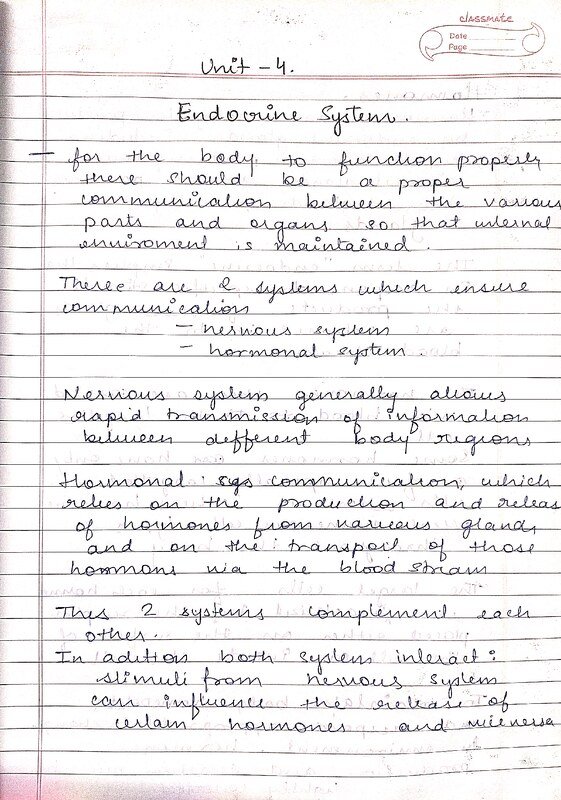 classmate
Date
Page
Unit - 4.
Endocrine System.
— for the body to function properly
there should be a proper
communication between the various
parts and organs so that internal
enviroment is maintained.
There are 2 systems which ensure
communication
- nervous system
- hormonal system
Nervous system generally allows
rapid transmission of information
between different body regions
Hormonal sys communication, which
relies on the production and releas
of hormones from various glands
and on the transport of those
hormons via the blood stream
This 2 systems complement each
other.
In adition both system interact:
stimuli from nervous system
can influence the release of
certain hormones and viceversa